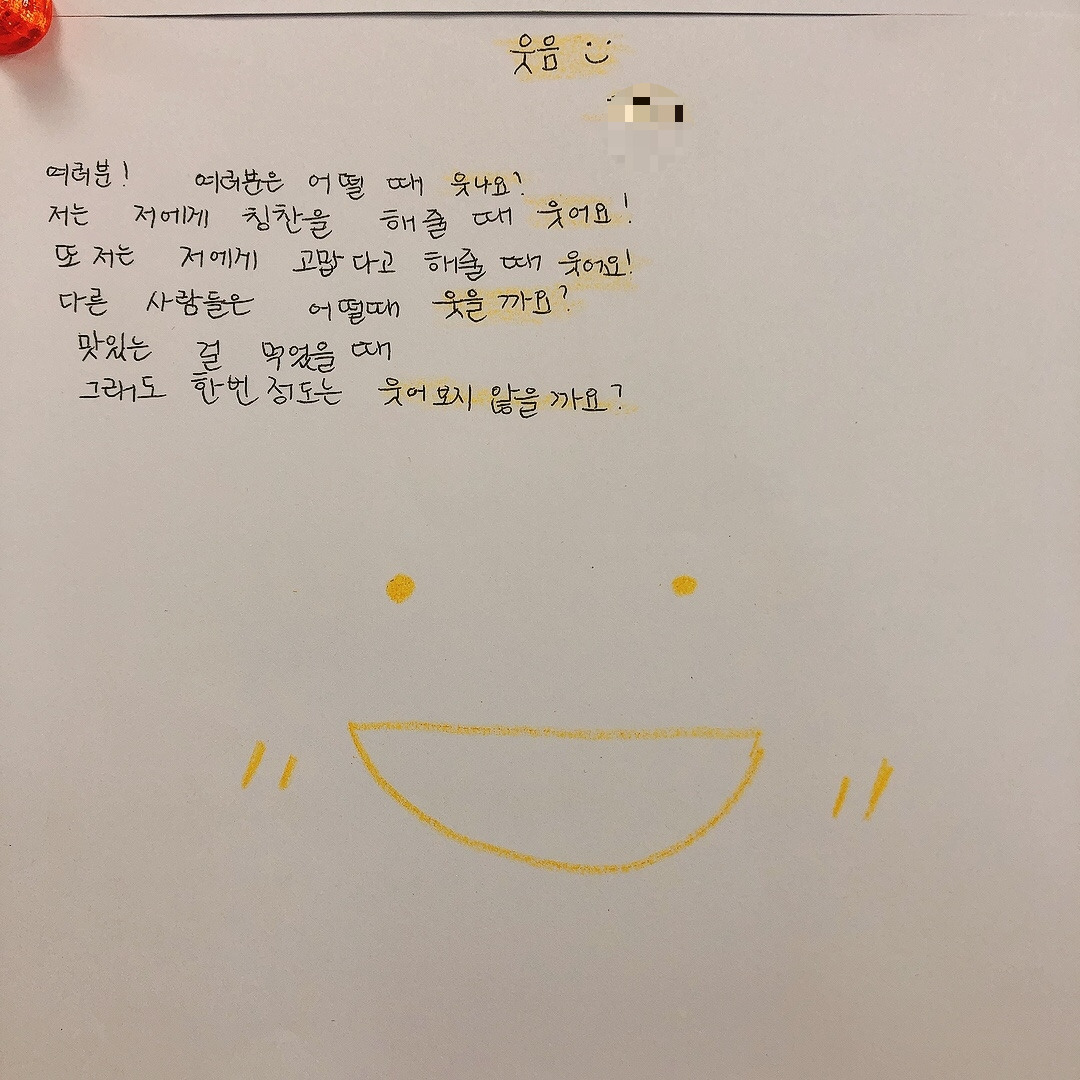 웃음 :)
여러분! 여러분은 어떨 때 웃나요?
저는 저에게 칭찬을 해줄 때 웃어요!
또 저는 저에게 고맙다고 해줄 때 웃어요!
다른 사람들은 어떨때 웃을까요?
맛있는 걸 먹었을 때
그래도 한번 정도는 웃어보지 않을까요?